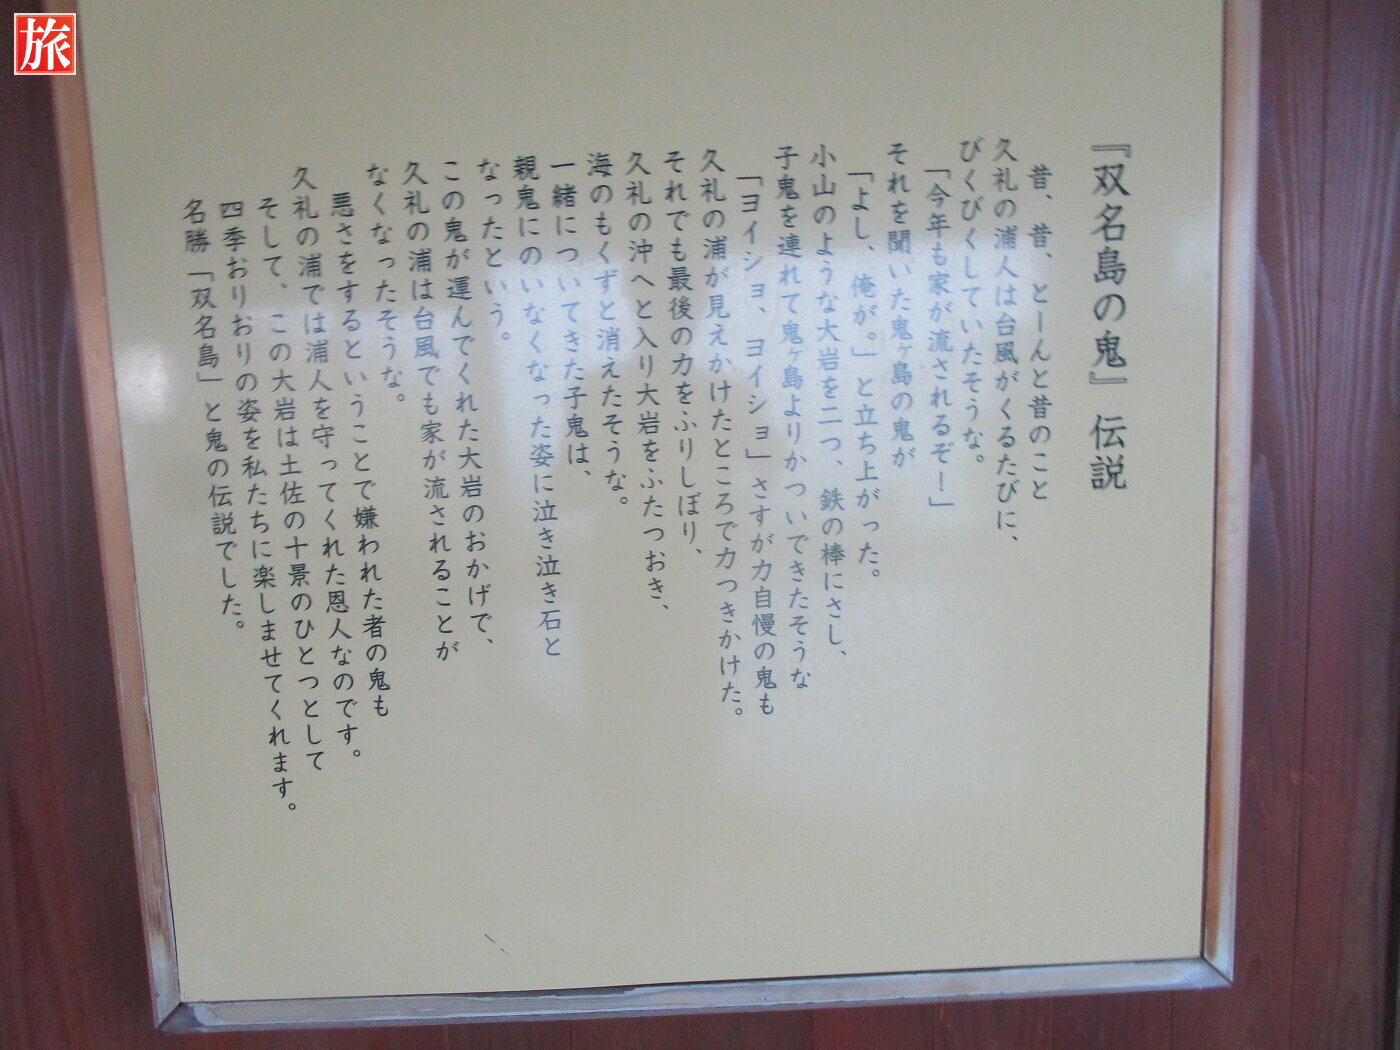 旅
『双名島の鬼』伝説
昔、昔、とーんと昔のこと
久礼の浦人は台風がくるたびに、
びくびくしていたそうな。
「今年も家が流されるぞー」
それを聞いた鬼ヶ島の鬼が
「よし、俺が。」と立ち上がった。
小山のような大岩を二つ、鉄の棒にさし、
子鬼を連れて鬼ヶ島よりかついできたそうな
「ヨイショ、ヨイショ」さすが力自慢の鬼も
久礼の浦が見えかけたところで力つきかけた。
それでも最後の力をふりしぼり、
久礼の沖へと入り大岩をふたつおき、
海のもくずと消えたそうな。
一緒についてきた子鬼は、
親鬼にのいなくなった姿に泣き泣き石と
なったという。
この鬼が運んでくれた大岩のおかげで、
久礼の浦は台風でも家が流されることが
なくなったそうな。
悪さをするということで嫌われた者の鬼も
久礼の浦では浦人を守ってくれた恩人なのです。
そして、この大岩は土佐の十景のひとつとして
四季おりおりの姿を私たちに楽しませてくれます。
名勝「双名島」と鬼の伝説でした。